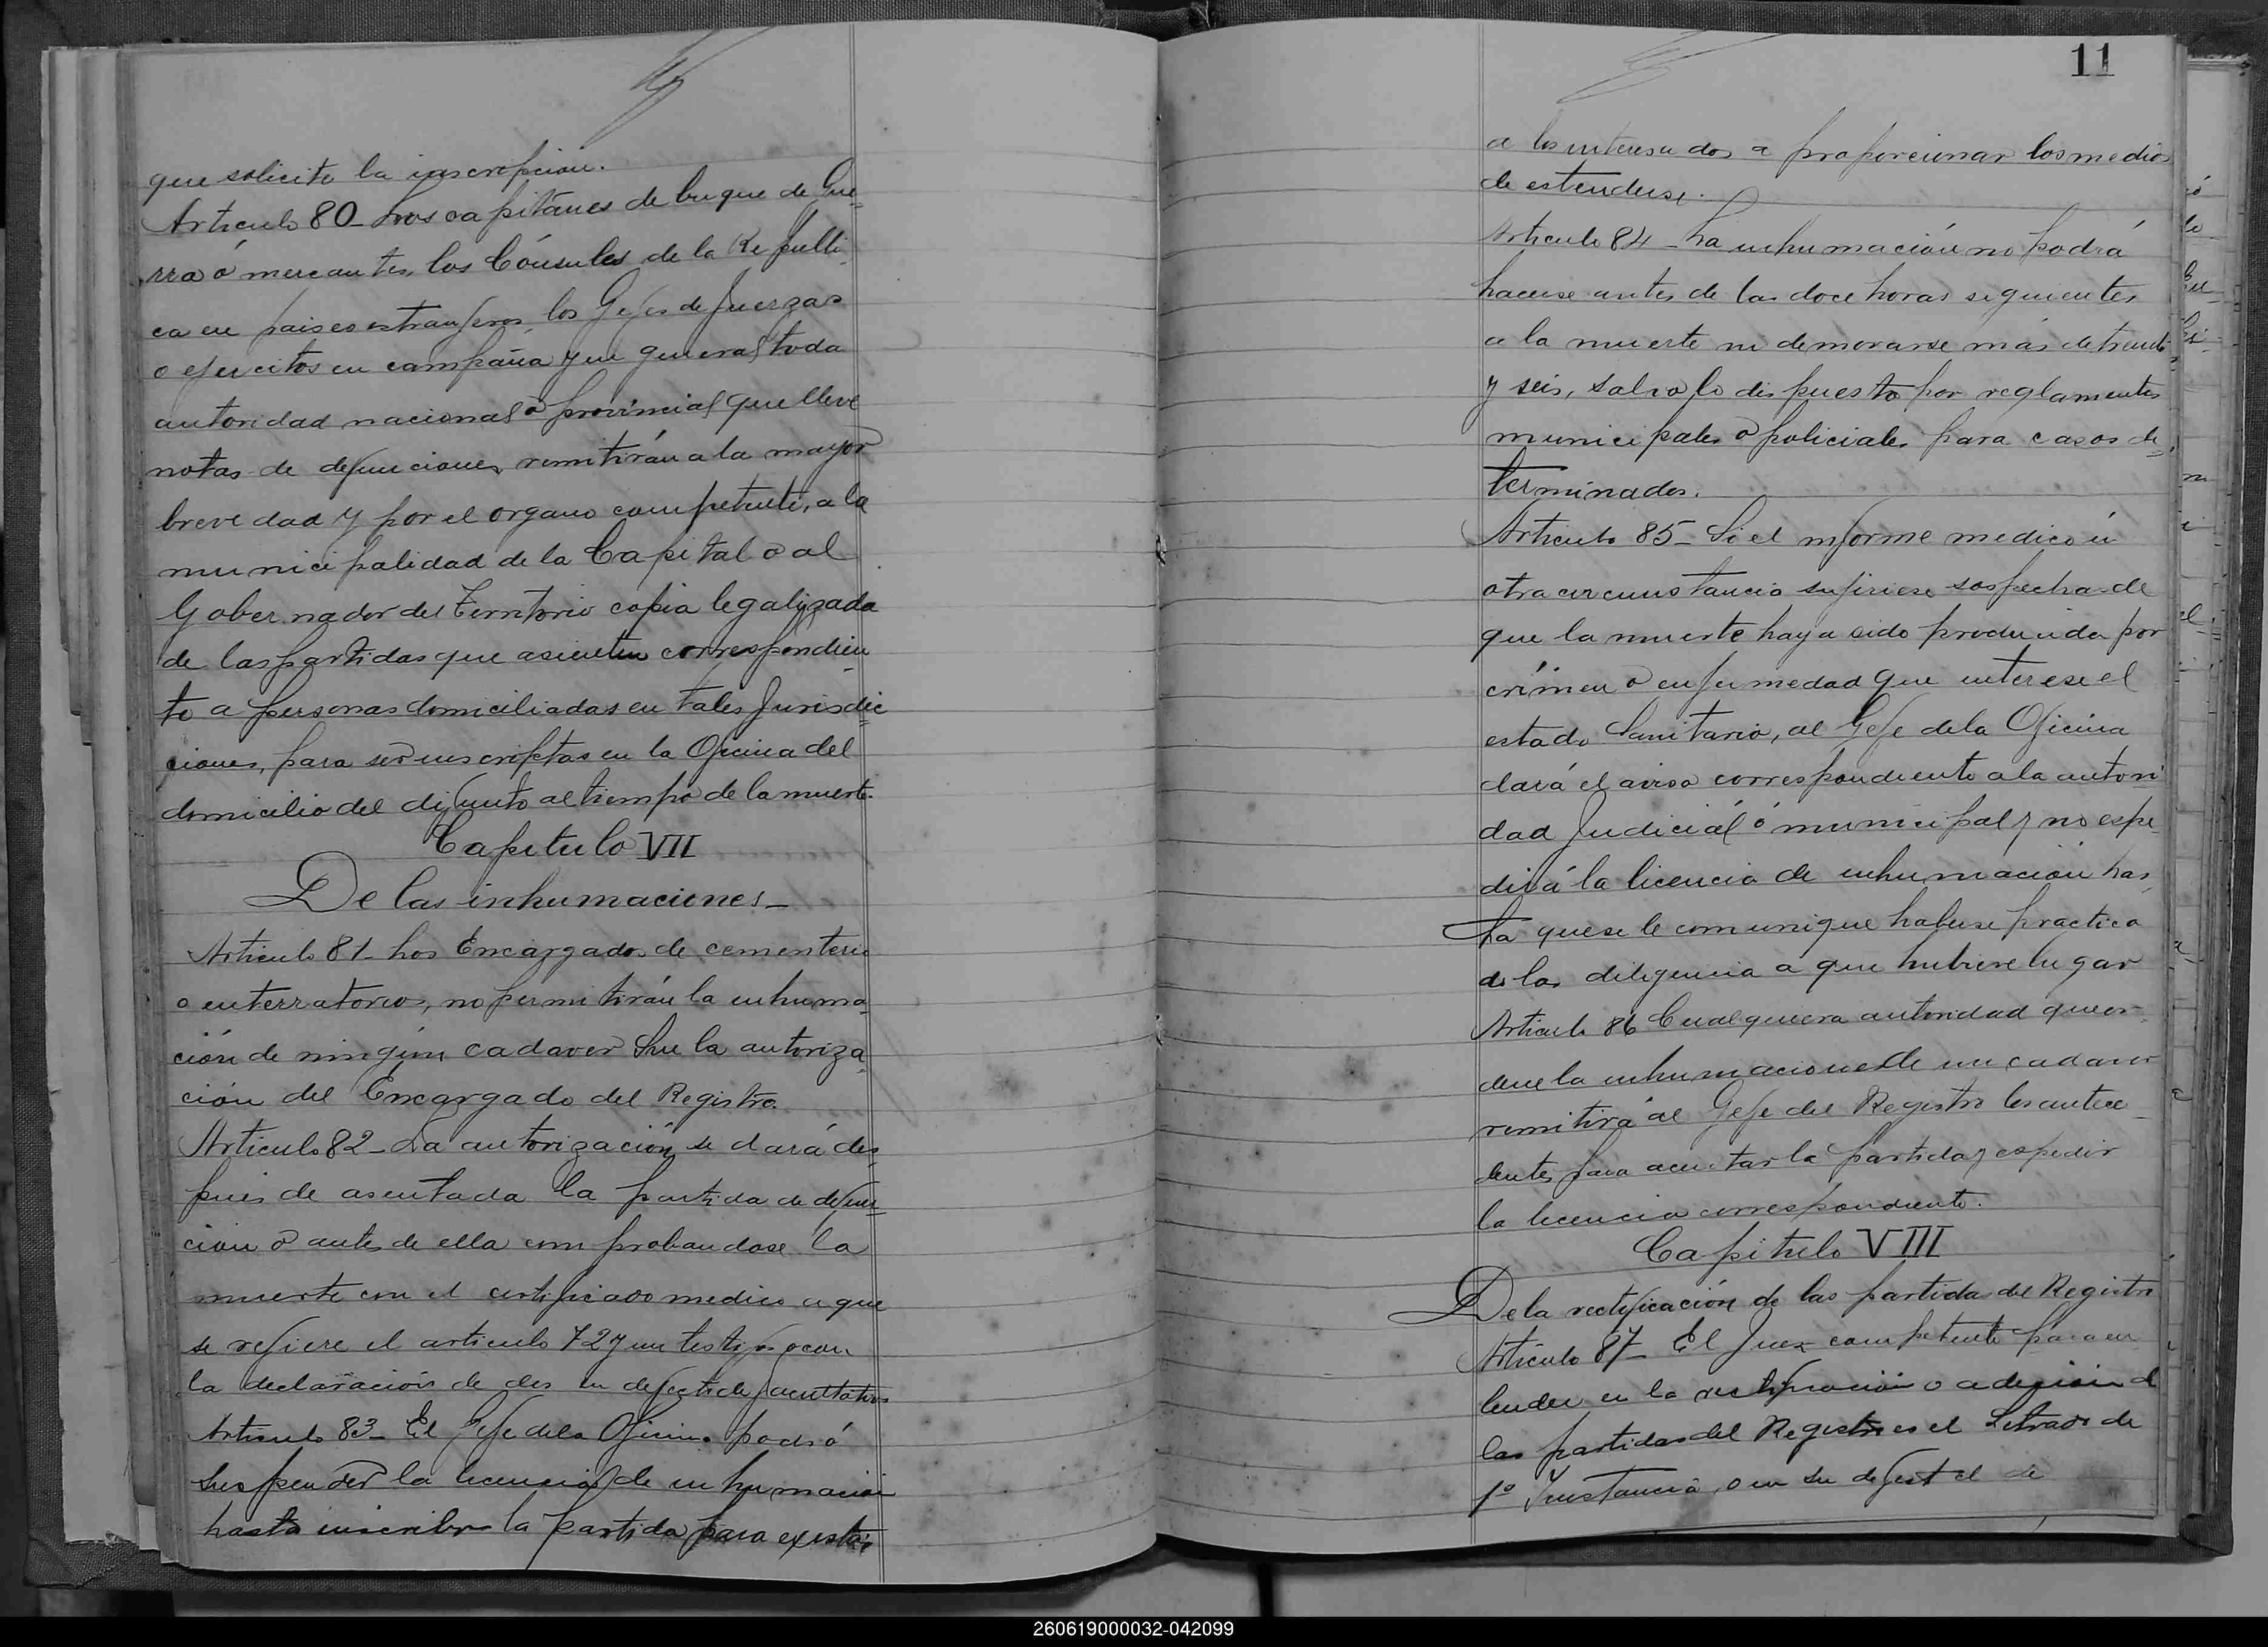 que solicite la inscripcion.
Articulo 80 - Los capitanes de buque de Gue=
rra ó mercantes, los Cónsules de la Republi-
ca en paises estranjeros, los Gefes de fuerzas
o ejercitos en campaña y en general toda
autoridad nacional o provincial que lleve
notas de defunciones, remitirán a la mayor
brevedad y por el organo competente, a la
municipalidad de la Capital o al
Gobernador del Territorio copia legalizada
de las partidas que asienten correspondien
te a personas domiciliadas en tales Jurisdic=
ciones, para ser inscriptas en la Oficina del
domicilio del difunto al tiempo de la muerte.
Capitulo VII
De las inhumaciones -
Articulo 81 - Los Encargados de cementerio
o enterratorios, no permitirán la inhuma-
ción de ningún cadaver sin la autoriza-
ción del Encargado del Registro.
Articulo 82 - La autorización se dará des-
pues de asentada la partida de defun=
cion o antes de ella comprobandose la
muerte con el certificado medico a que
se refiere el articulo 72 y un testigo o con
la declaración de dos en defecto de facultativos
Articulo 83 - El Gefe dela Oficina podrá
suspender la licencia de inhumación
hasta inscribir la partida para
11
a los interesados a proporcionar los medios
de estenderse.
Articulo 84 - La inhumación no podrá
hacerse antes de las doce horas siguientes
a la muerte ni demorarse más de treinta
y seis, salvo lo dispuesto por reglamentos
municipales o policiales para casos de=
terminados.
Articulo 85 - Si el informe medico ú
otra circunstancia sujiriese sospecha de
que la muerte haya sido producida por
crímen o enfermedad que interese el
estado Sanitario, al Gefe dela Oficina
dará el aviso correspondiente a la autori
dad Judicial ó municipal y no espe-
dirá la licencia de inhumación has
ta que se le comunique haberse practica
do las diligencia a que hubiere lugar
Articulo 86 Cualquiera autoridad que or-
dene la inhumacion de un cadaver
remitirá al Gefe del Registro los antece-
dentes para asentar la partida y espedir
la licencia correspondiente.
Capitulo VIII
De la rectificación de las partidas del Registro
Articulo 87 - El Juez competente para en
tender en la rectificación o adición d
las partidas del Registro es el Letrado de
1º Instancia, o en su defect el de
260619000032-042099